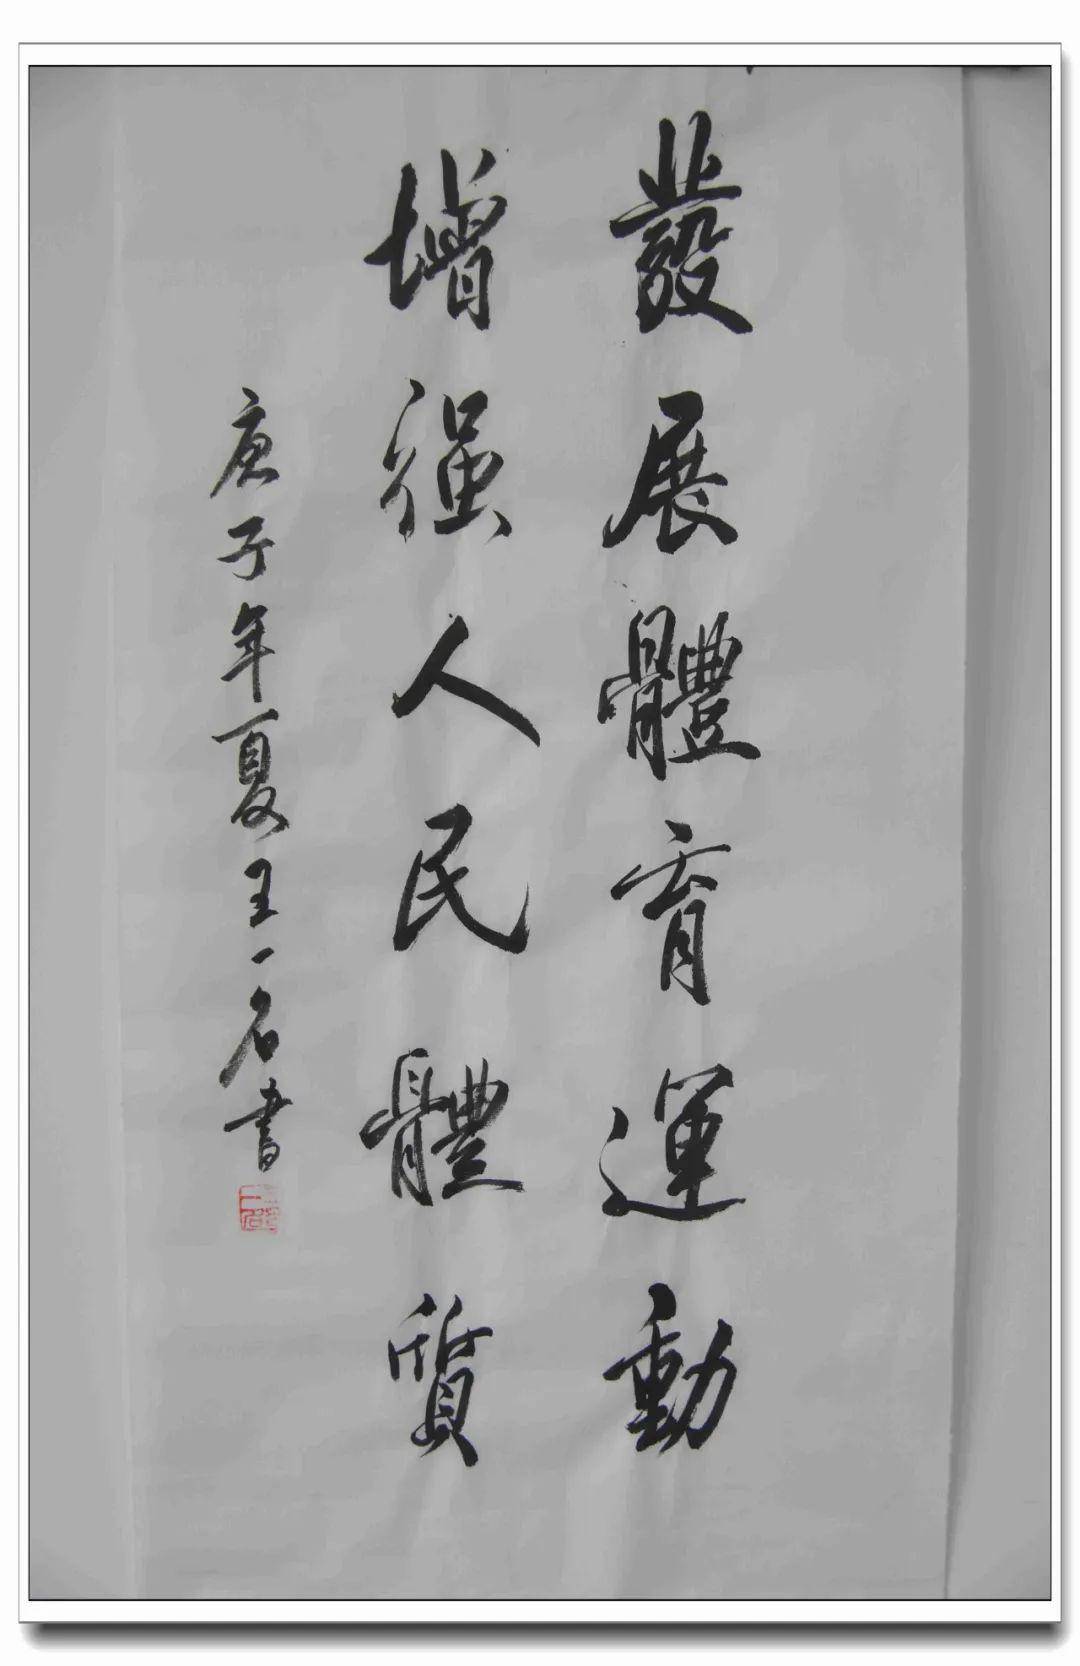 發展體育運動
增强人民體質
庚子年夏王一名書